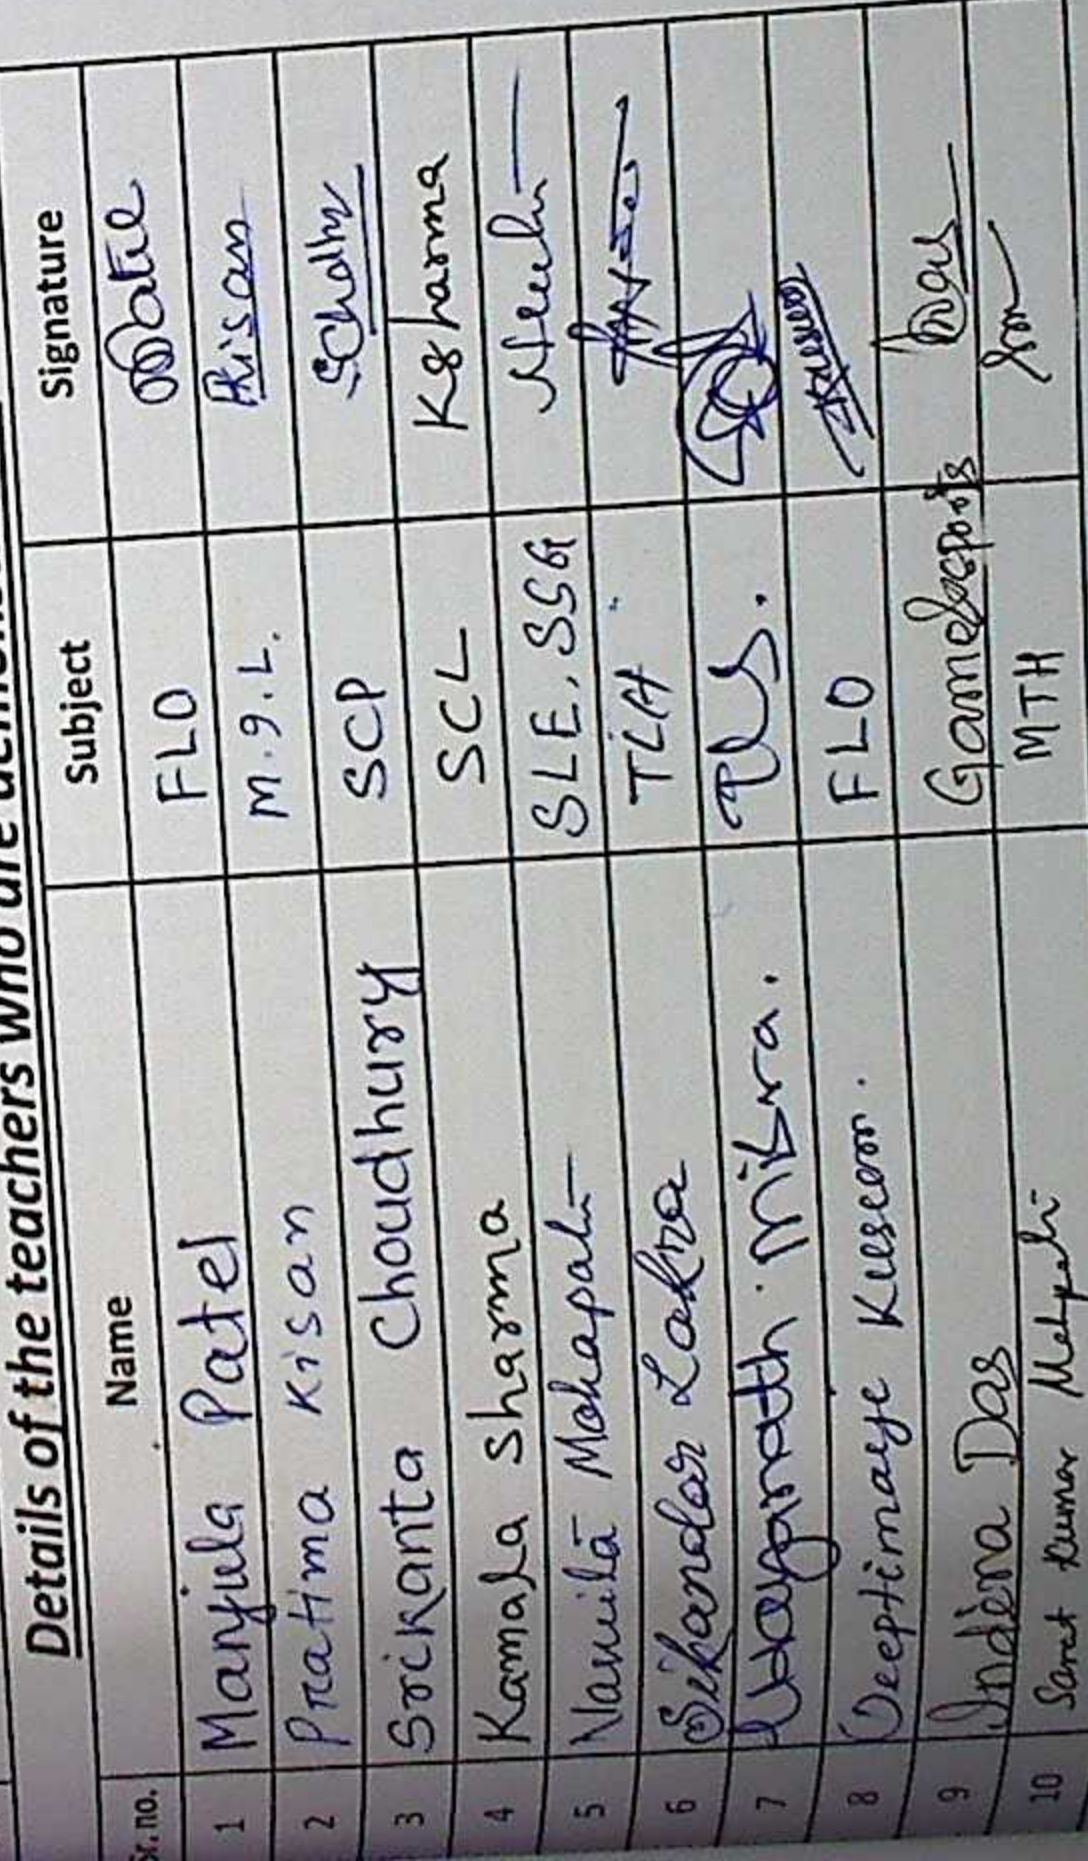 Details of the teachers who are
Sr. no. Name Subject Signature
1 Manjula Patel FLO Patel
2 Pratima Kisan M.g.L. PKisan
3 Srikanta Choudhury SCP SChodhry
4 Kamala Sharma SCL KSharma
5 Namita Mohapatra SLE, SSG
6 Sikandar Lakra TLH
7 Jagannath Mishra. TLS.
8 Deeptimayee Kuseom. FLO
9 Indira Das Games & Sports Das
10 Sarat Kumar MTH